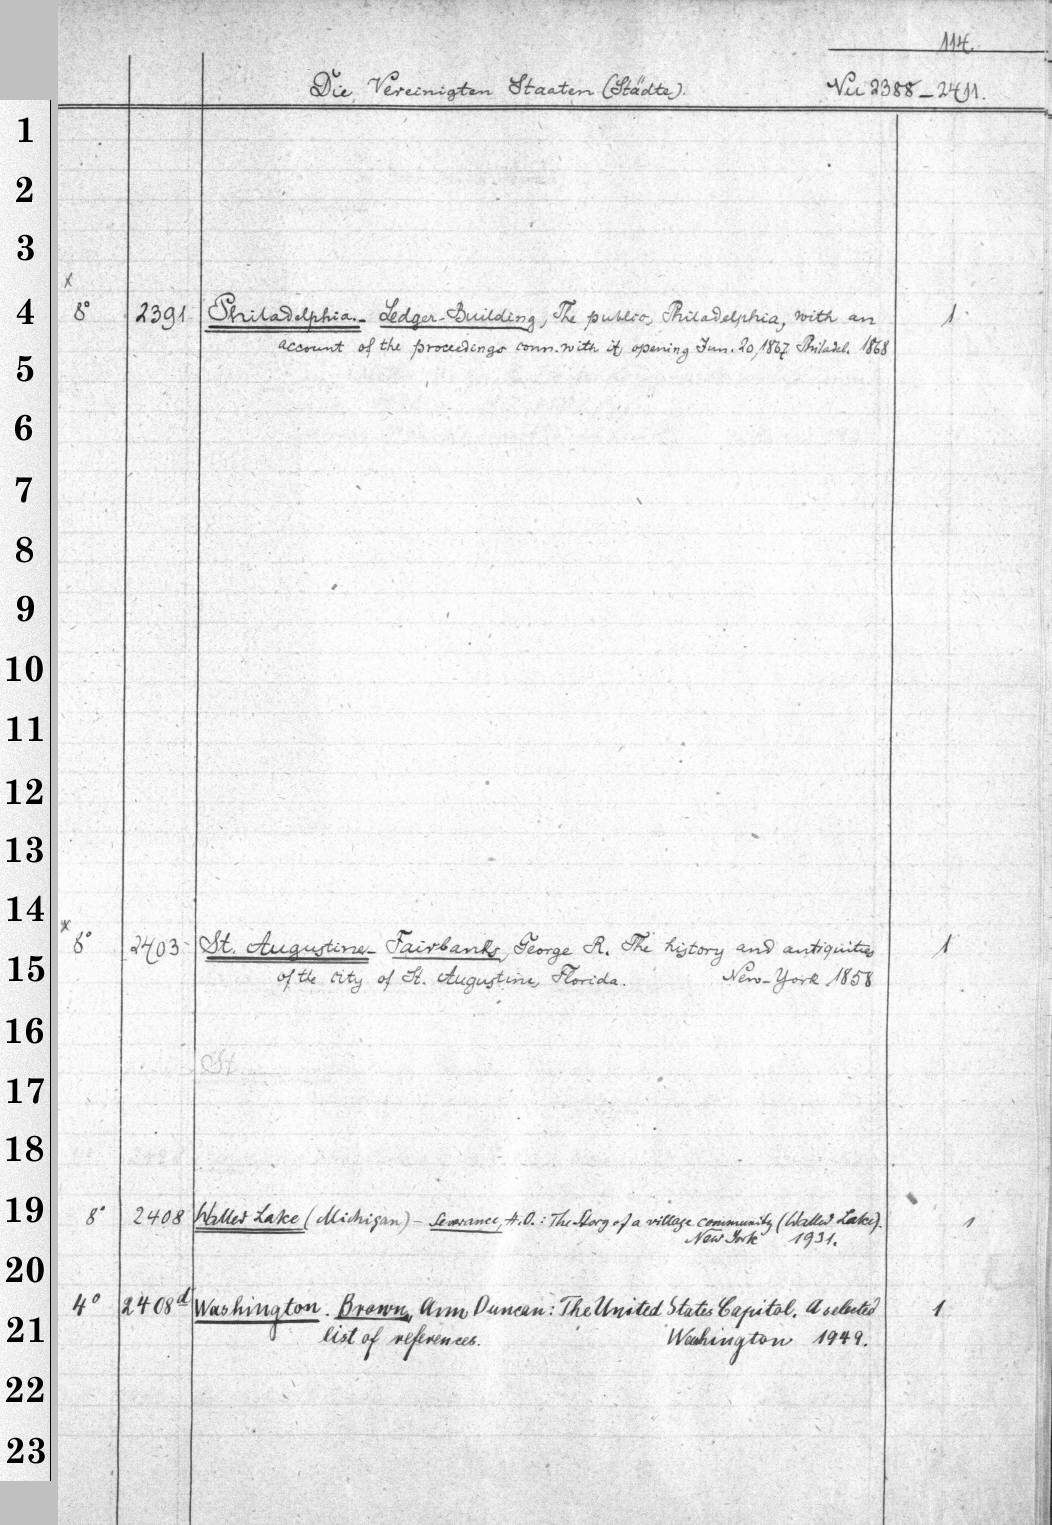 114.
Die Vereinigten Staaten (Städte). Nu 2388-2411.
1
2
3
x
4 8° 2391 Philadelphia.- Ledger-Building, The public, Philadelphia, with an 1
account of the proceedings conn. with it, opening Jun. 20, 1867. Philadel. 1868
5
6
7
8
9
10
11
12
13
14
x
8° 2403 St. Augustine- Fairbanks, George R. The history and antiquities 1
15 of the city of St. Augustine, Florida. New-York 1858
16
St
17
18
19 8° 2408 Walled Lake (Michigan) - Severance, H.O.: The Story of a village community (Walled Lake). 1
New York 1931.
20
4° 2408d Washington. Brown, Ann Duncan: The United States Capitol. A selected 1
21 list of references. Washington 1949.
22
23